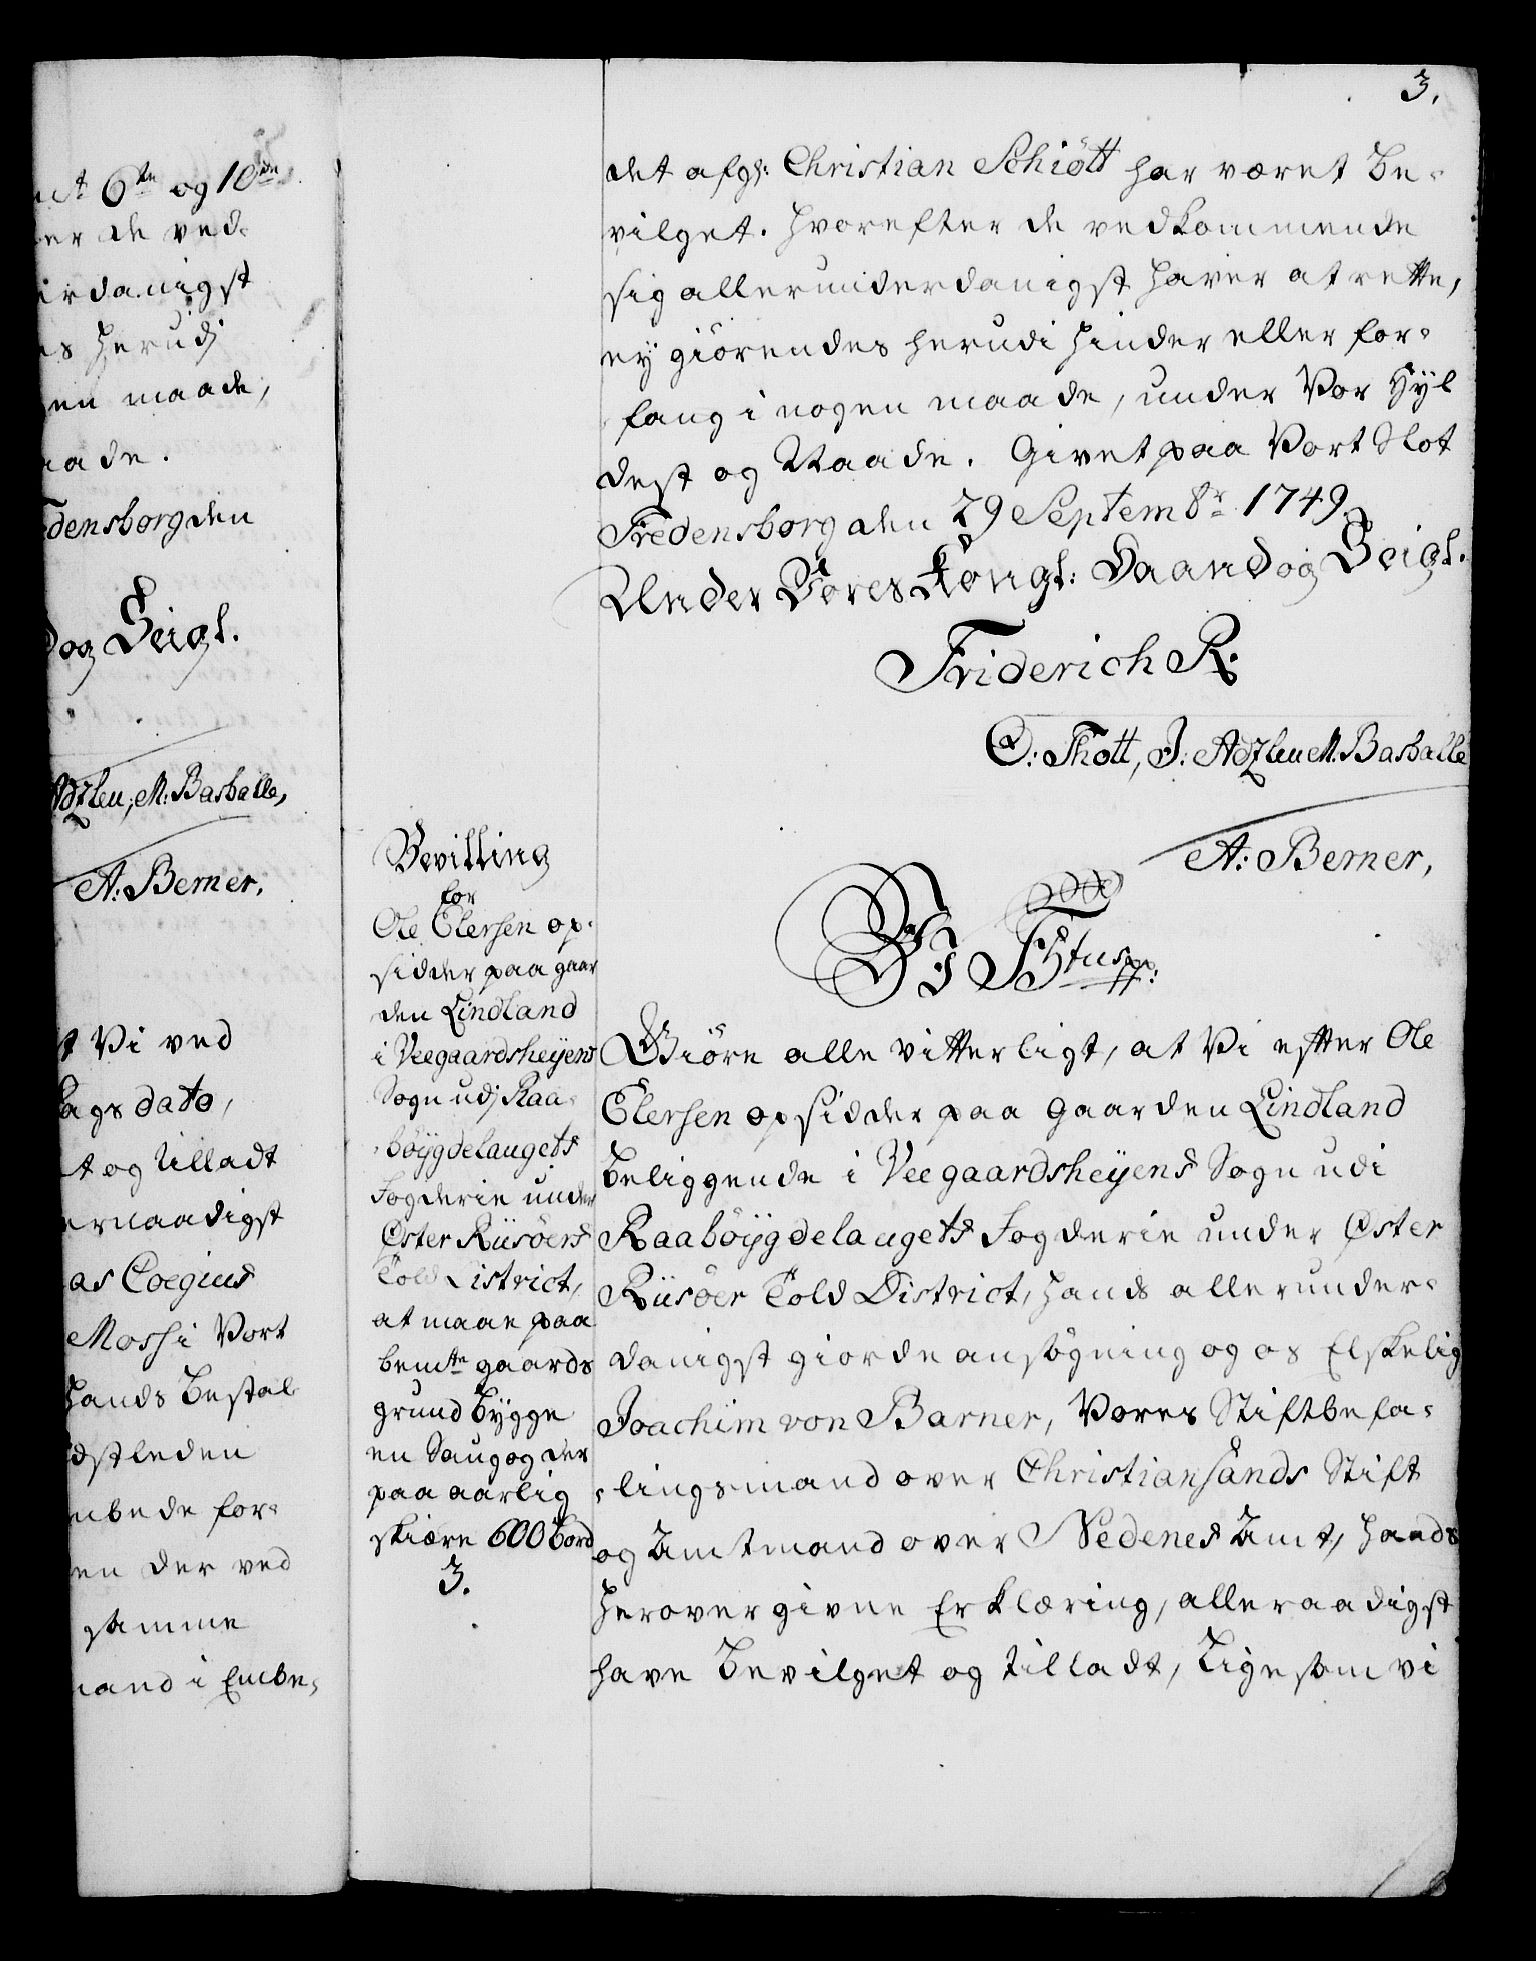 3.
ct 6te og 10de
er de ved-
irdanigst
es herudj
gen maade,
aade.
densborg den
d og Seigl.
Adzleu, M: Basballe,
A: Berner.
t Vi ved
Dags dato,
t og tilladt
ernaadigst
as Coegius
Mossi Vort
hands Bestal
idstleden
mbede for-
en der ved
samme
mand i Embe,
det afg: Christian Schiött har været be-
vilget. Hvorefter de vedkommende
sig allerunderdanigst haver at rette,
ey giörendes herudi hinder eller for-
fang i nogen maade, under Vor Hyl
dest og Naade. Givet paa Vort Slot
Fredensborg den 29 Septem8r 1749.
Under Vores Kongl: Haand og Seigl.
Friderich R.
O: Thott, J: Adzleu M: Basballe
A: Berner,
Bevilling
for
Ole Elersen op-
sidder paa gaar
den Lindland
i Veegaardsheyens
Sogn udj Raa-
böygdelaugets
Fogderie under
Øster Riisöers
Told District,
at maae paa
bemte gaards
grund bygge
en Saug og der
paa aarlig
skiære 600 bord
3.
Vi F 5tus pp:
Giöre alle vitterligt, at Vi efter Ole
Elersen opsidder paa gaarden Lindland
beliggende i Veegaardsheyens Sogn udi
Raaböygdelaugets Fogderie under Øster
Riisöer Told District, hands allerunder-
danigst giorde ansögning og os Elskelig
Joachim von Barner, Vores Stiftbefa-
lingsmand over Christiansands Stift
og Amtmand over Nedenes Amt, hands
herover givne Erklæring, alleraadigst
have bevilget og tilladt, ligesom vi